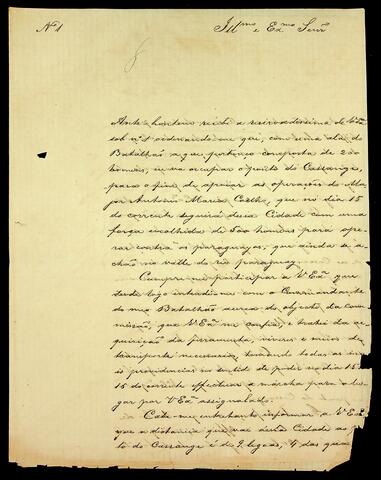 Nº 1
Illmo e Exmo Senr
Ante hontem recebi a reservadissima de V. Exª
sob nº 1 ordenando-me que, com uma ala do
Batalhão a que pertenço composta de 200
homens, eu va occupar o ponto do Cassange,
para o fim de apoiar as operações do Ma-
jor Antonio Maria Coelho, que no dia 15
do corrente seguirá dessa Cidade com uma
força escolhida de 500 homens para ope-
rar contra os paraguayos, que ainda se a-
chão no valle do rio paraguay.
Cumpre-me participar a V. Exª que
desde logo intendi-me com o Commandante
do meu Batalhão acerca do objecto da com-
missão, que V. Exª me confia, e tratei da ac-
quisição da ferramenta, viveres e meios de
transporte necessarios, tomando todas as
providencias no sentido de poder no dia
15 do corrente effectuar a marcha para o lu-
gar por V. Exª assignalado.
Cabe-me entretanto informar a V. Exª
que a distancia que vai desta Cidade ao
to do Cassange é de 9 legoas, 4 das quaes